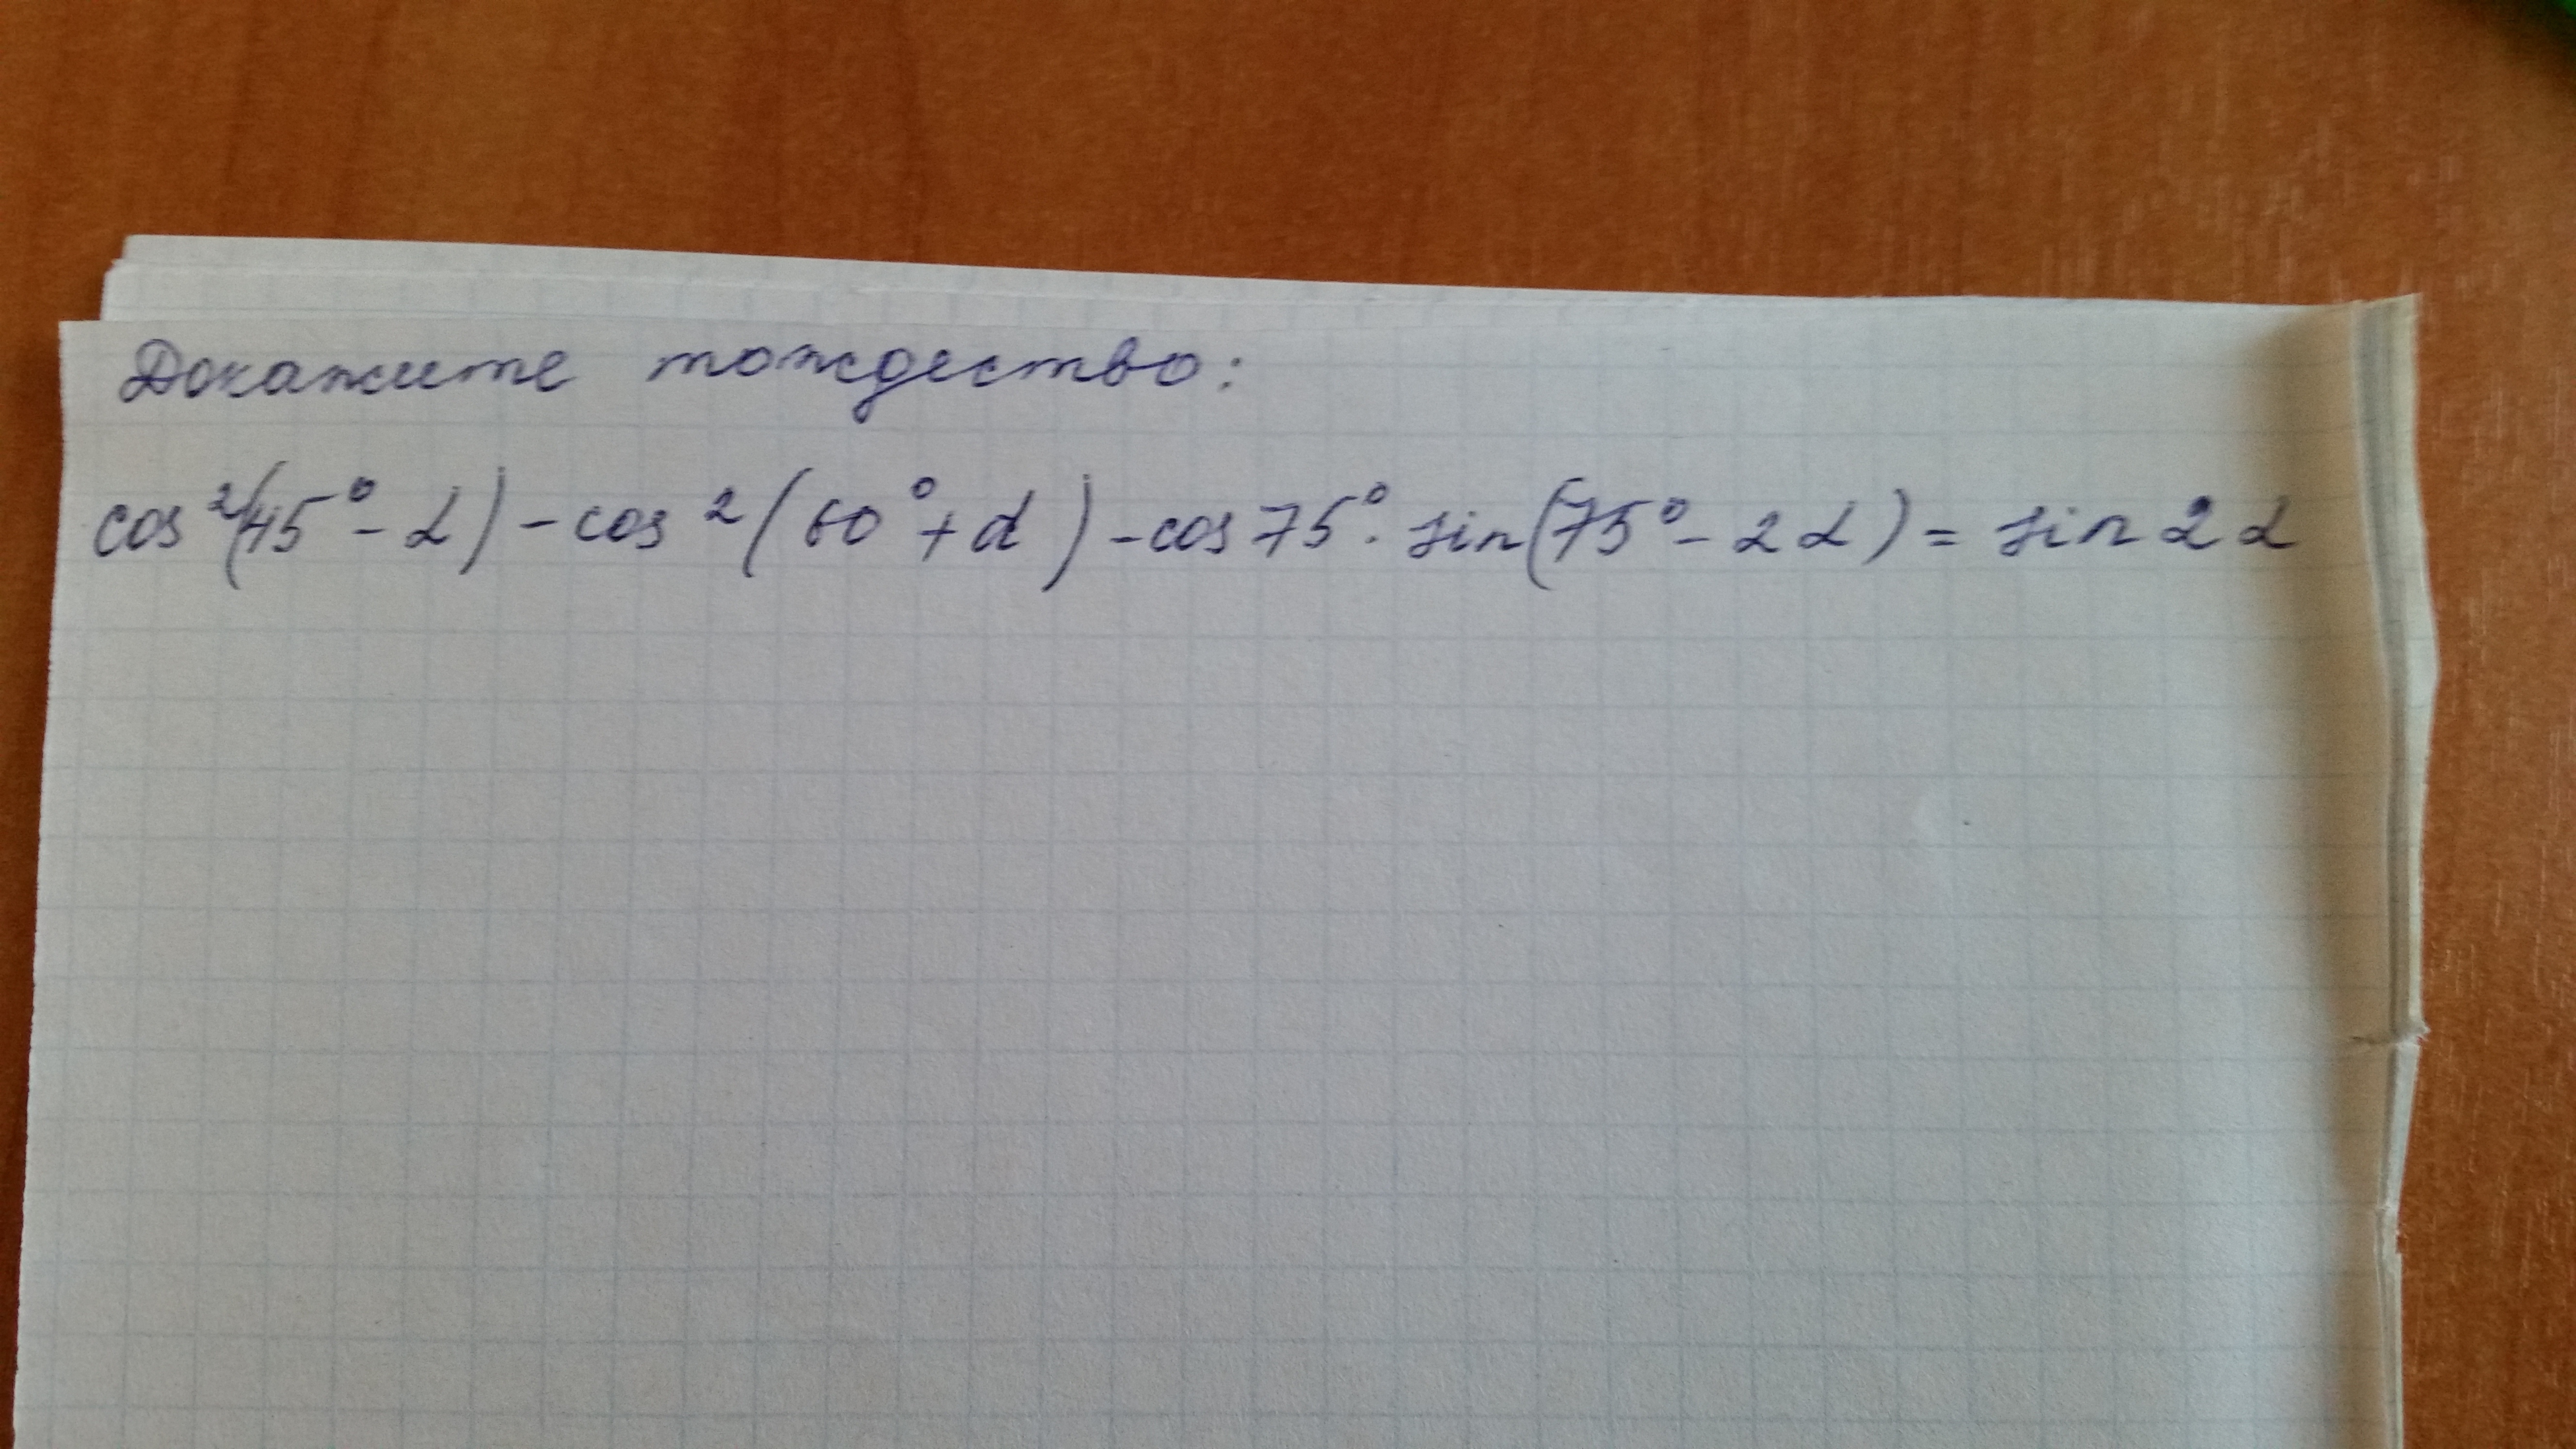 Докажите тождество:
cos²(45°-α)-cos²(60°+α)-cos75°·sin(75°-2α)=sin2α